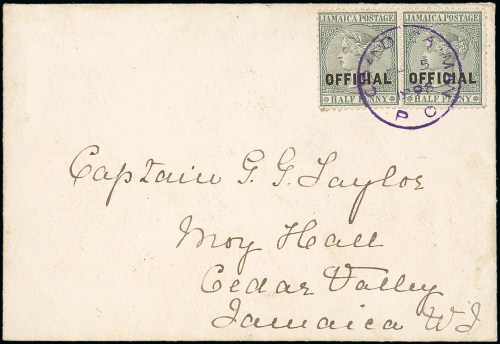 JAMAICA POSTAGE JAMAICA POSTAGE
OFFICIAL OFFICIAL
HALF PENNY HALF PENNY
Captain G. G. Taylor
Moy Hall
Cedar Valley
Jamaica WI